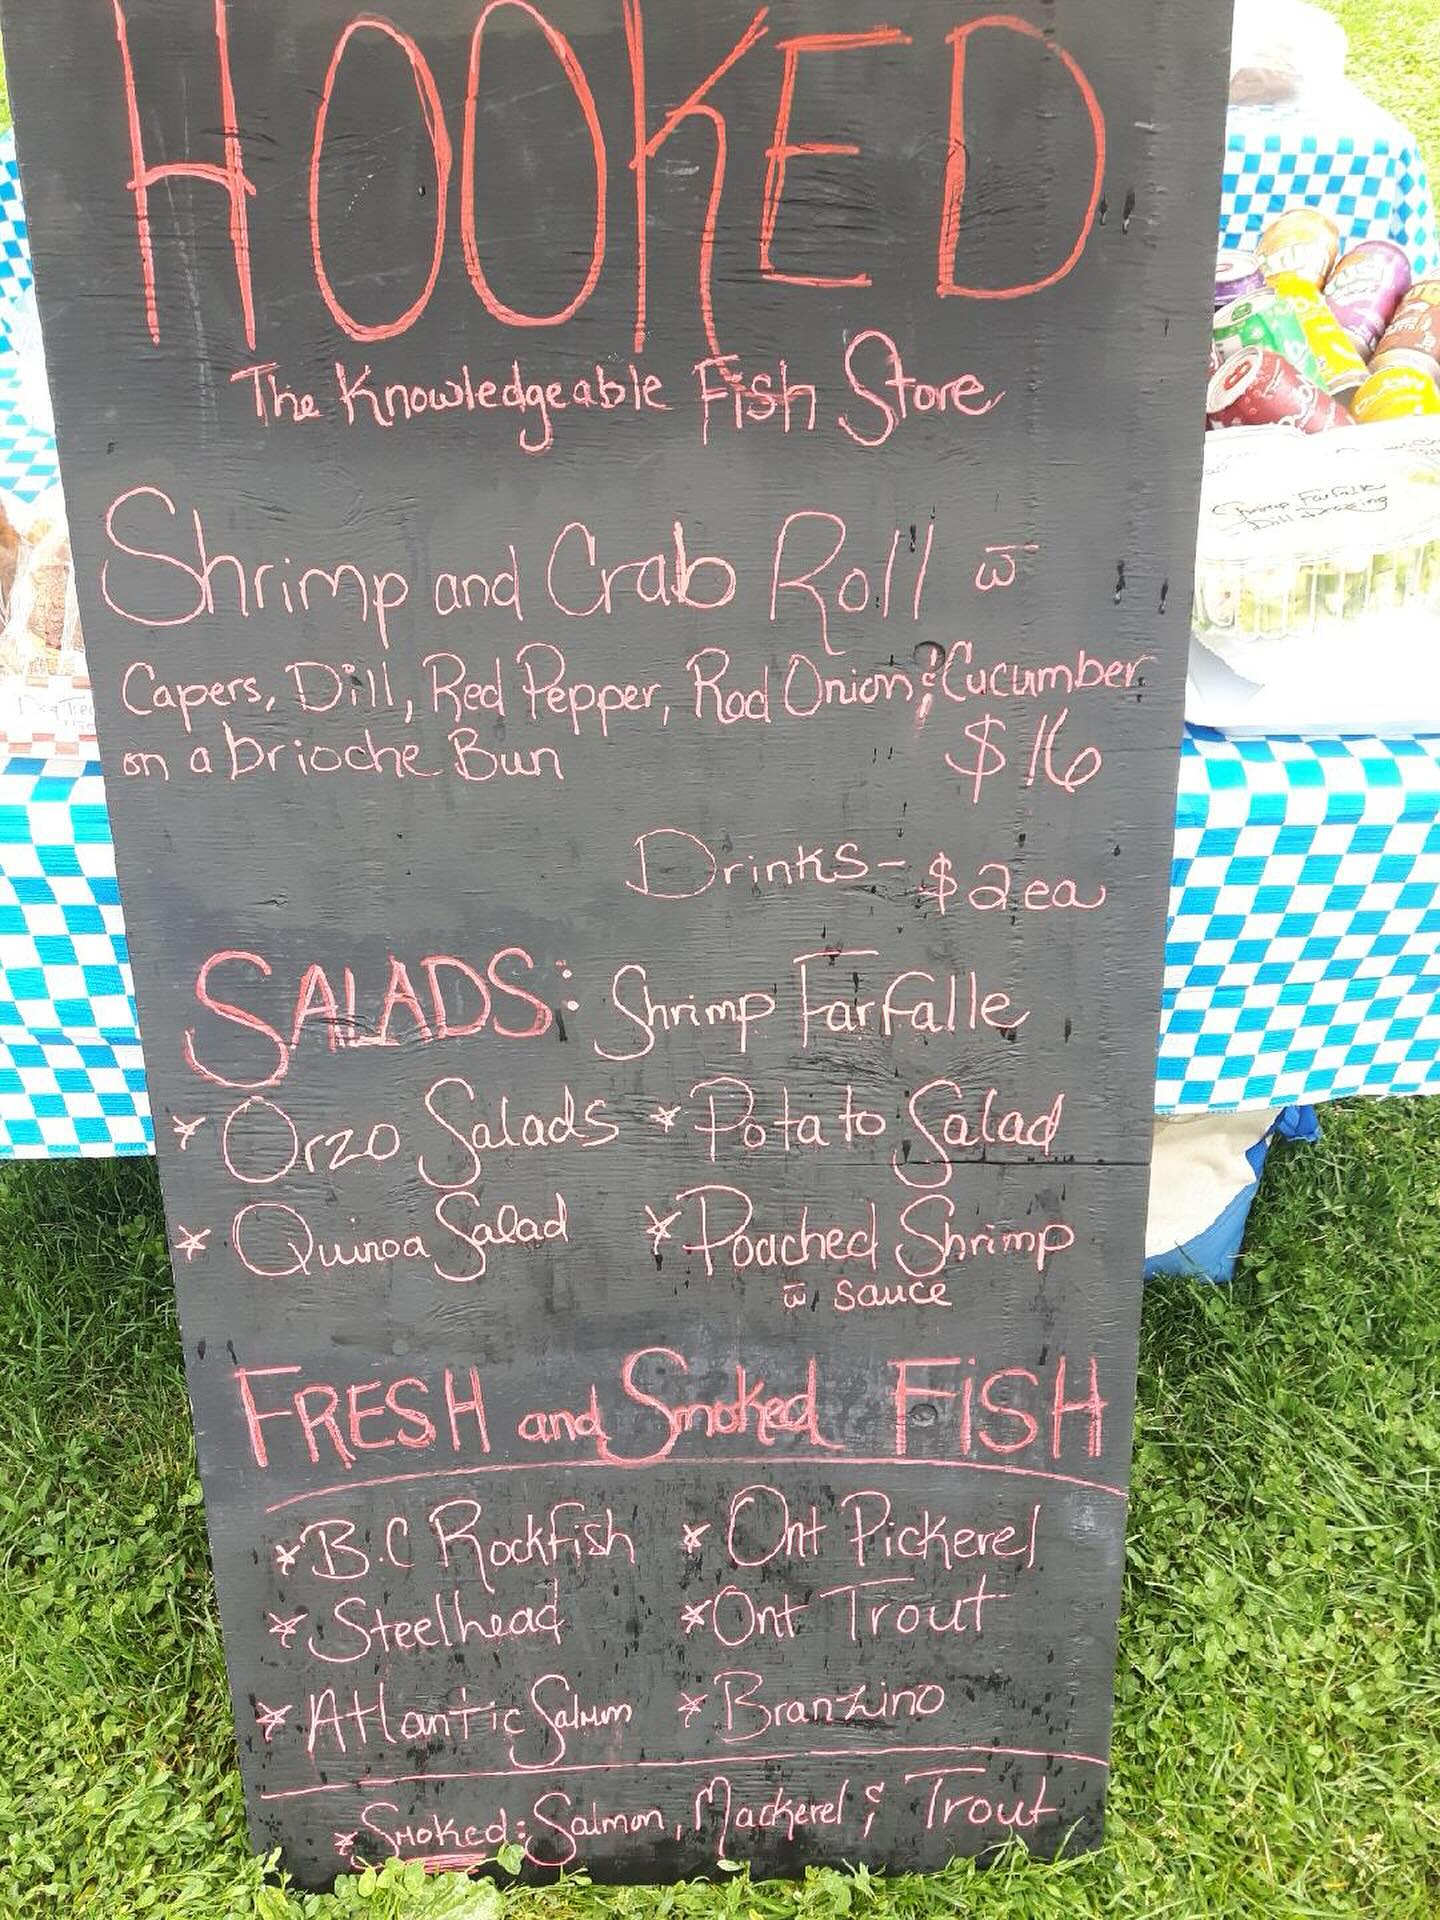 HOOKED
The Knowledgeable Fish Store
Shrimp and Crab Roll w̄
Capers, Dill, Red Pepper, Red Onion & Cucumber
on a brioche Bun
$16
Drinks - $2 ea
SALADS: Shrimp Farfalle
* Orzo Salads * Potato Salad
* Quinoa Salad * Poached Shrimp
w̄ sauce
FRESH and Smoked FISH
* B.C Rockfish * Ont Pickerel
* Steelhead * Ont Trout
* Atlantic Salmon * Branzino
* Smoked: Salmon, Mackerel & Trout
Shrimp Farfalle
Dill Dressing
CRUSH